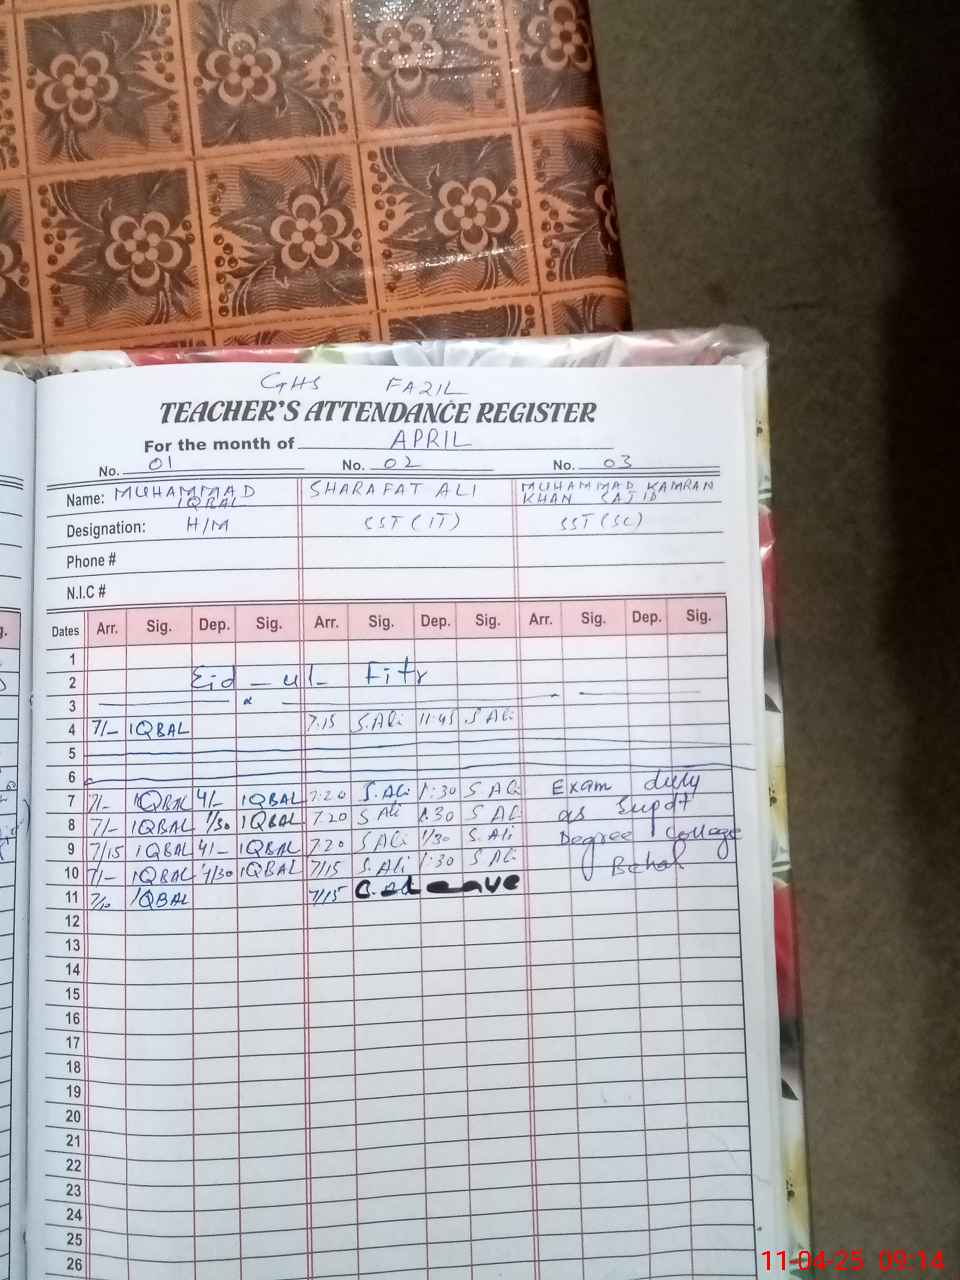 GHS FAZIL
TEACHER'S ATTENDANCE REGISTER
For the month of APRIL
No. 01 No. 02 No. 03
Name: MUHAMMAD IQBAL SHARAFAT ALI MUHAMMAD KAMRAN KHAN SAJID
Designation: H/M CST (IT) SST (SC)
Phone #
N.I.C #
Dates Arr. Sig. Dep. Sig. Arr. Sig. Dep. Sig. Arr. Sig. Dep. Sig.
1
2 Eid - ul - Fitr
3
4 7/- IQBAL 7.15 S.Ali 11:45 S Ali
5
6
7 7/- IQBAL 4/- IQBAL 7:20 S.Ali 1:30 S Ali Exam duty
8 7/- IQBAL 1/30 IQBAL 7 20 S Ali 1:30 S Ali as Supdt
9 7/15 IQBAL 4/- IQBAL 7 20 S Ali 1/30 S. Ali Degree College
10 7/- IQBAL 4/30 IQBAL 7/15 S.Ali 1:30 S Ali Behal
11 IQBAL 7/15
12
13
14
15
16
17
18
19
20
21
22
23
24
25
26
11-04-25 09:14